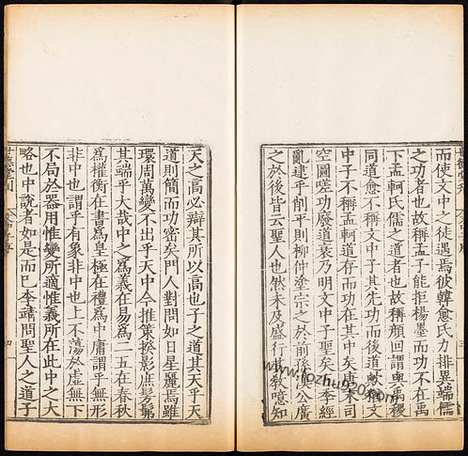 而使文中之徒遇焉彼韓愈氏力排異端儒
之功者也故稱孟子能拒楊墨而功不在禹
下孟軻氏儒之道者也故稱顏回謂與禹稷
同道愈不稱文中子其先功而後道歟稱文
中子不稱孟軻道存而其中矣唐末司
空圖嗟功廢道衰乃明文中子聖矣
亂建乎削平則柳仲塗宗之於前孫漢公廣
之於後皆云聖人也然未及盛行其教噫知
天之高必辯其所以高也子之道其天乎天
道則簡而功密矣門人對問如日星麗焉雖
環周萬變不出乎天中今推策揆影庶髣髴
其端乎大哉中之爲義在易爲二五在春秋
爲權衡在書爲皇極在禮爲中庸謂乎無形
非中也謂乎有象非中也上不蕩於虛無下
不局於器用惟變所適惟義所在此中之大
略也中說者如是而已李靖問聖人之道子
四
www.fozhu920.com